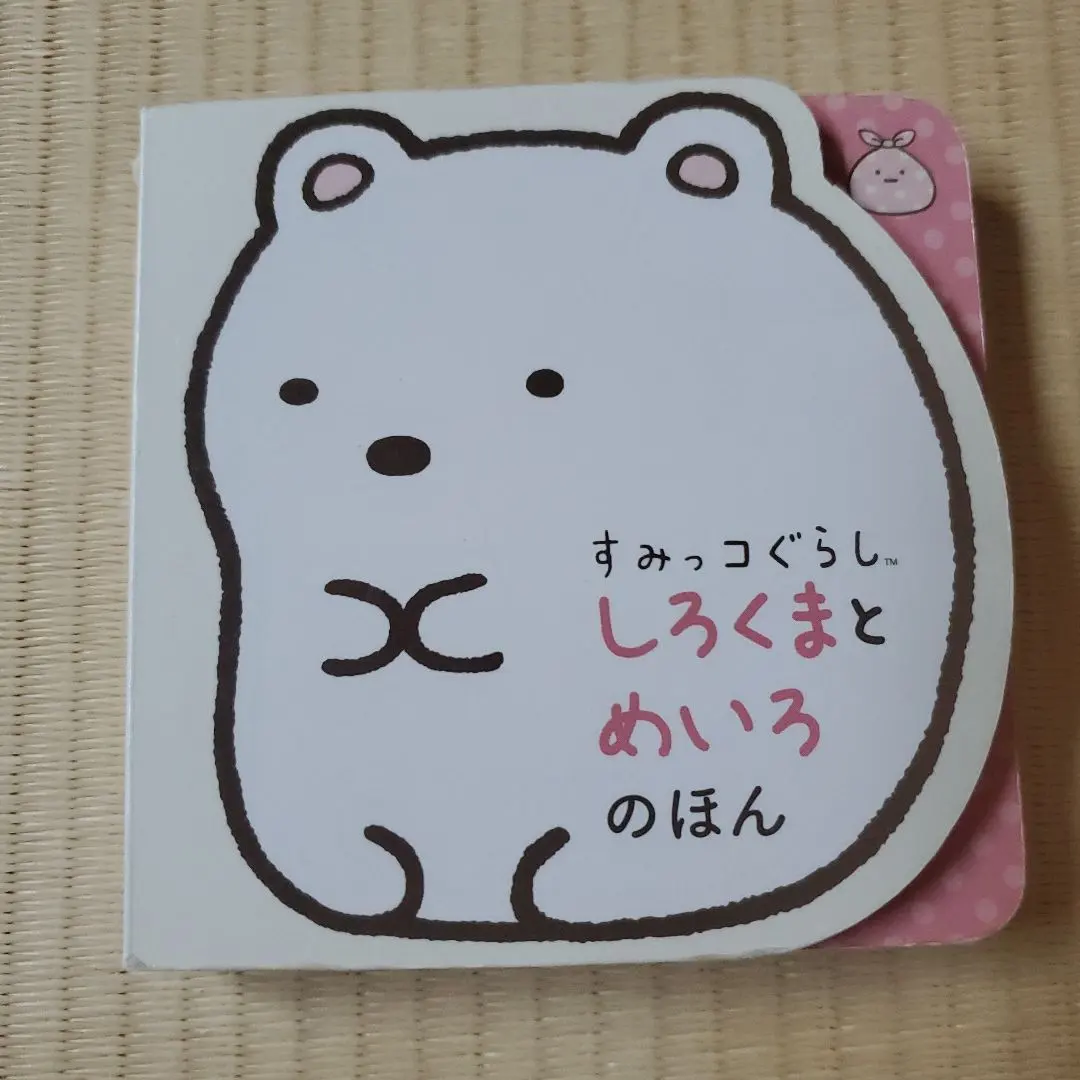 すみっコぐらし™
しろくまと
めいろ
のほん